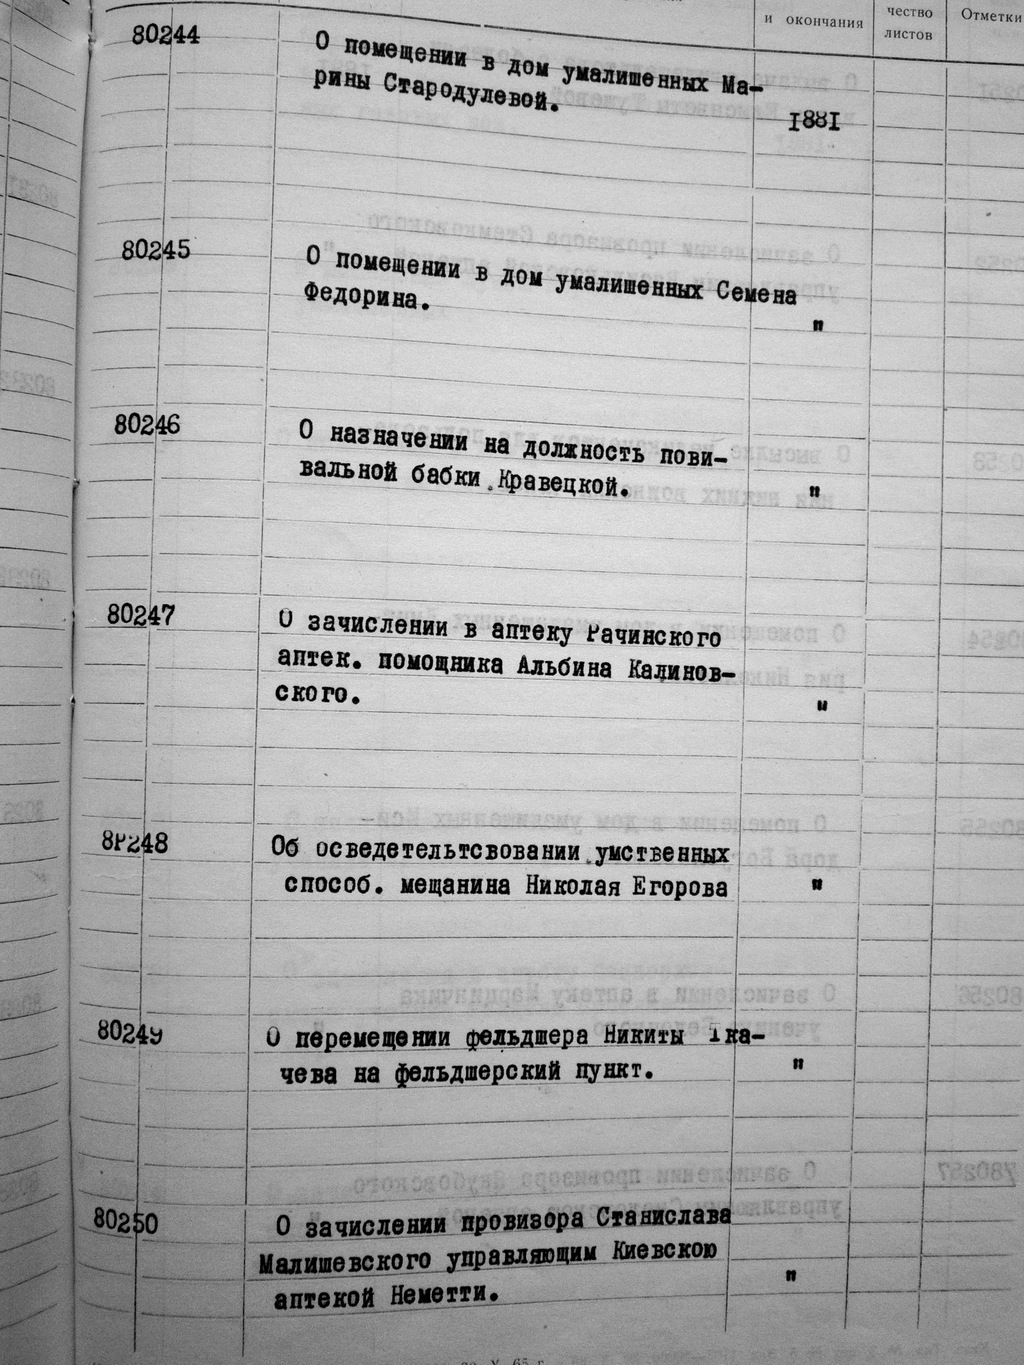 и окончания
чество
листов
Отметки
80244
О помещении в дом умалишенных Ма-
рины Стародулевой.
1881
80245
О помещении в дом умалишенных Семена
Федорина.
"
80246
О назначении на должность пови-
вальной бабки Кравецкой.
"
80247
О зачислении в аптеку Рачинского
аптек. помощника Альбина Калинов-
ского.
"
8Р248
Об осведетельтсвовании умственных
способ. мещанина Николая Егорова
"
80249
О перемещении фельдшера Никиты Тка-
чева на фельдшерский пункт.
"
80250
О зачислении провизора Станислава
Малишевского управляющим Киевскою
аптекой Неметти.
"